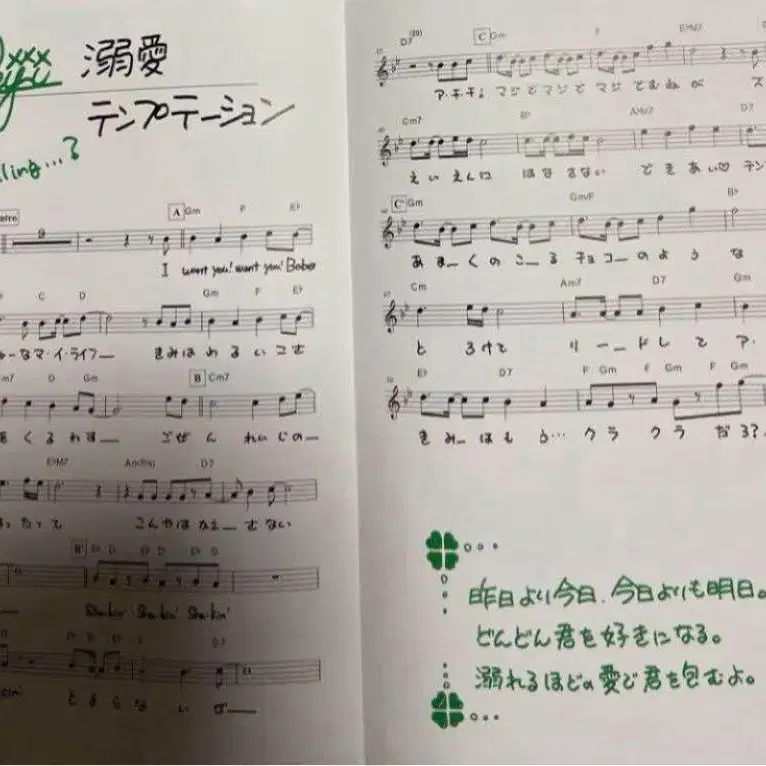 溺愛
テンプテーション
ling...?
9
A Gm F E♭
I want you! want you! Babe
C D Gm F E♭
なマ・イ・ライフ― きみは わるい こむ
m7 D Gm B Cm7
くるわす― ごぜん れいじの―
E♭M7 Am7(♭5) D7
たって こんやは かえ―せない
B' E♭ D E♭ D E♭ D
Shakin' Shakin' Shakin'
D7
とまらない ぜ―
D7(♭9) C Gm F E♭M7
ア・チ・チ! マジでマジで マジで むねが ス
Cm7 E♭ AM7 D7
えいえんに はなさない できあい♡ テン
C' Gm Gm/F B♭
あま―くのこ―る チョコ―のような
Cm Am7 D7 Gm
とろけて リ―ドして ア・
E♭ D7 F Gm F Gm F Gm
きみ―はもう… クラクラだろ?
昨日より今日、今日よりも明日。
どんどん君を好きになる。
溺れるほどの愛で君を包むよ。